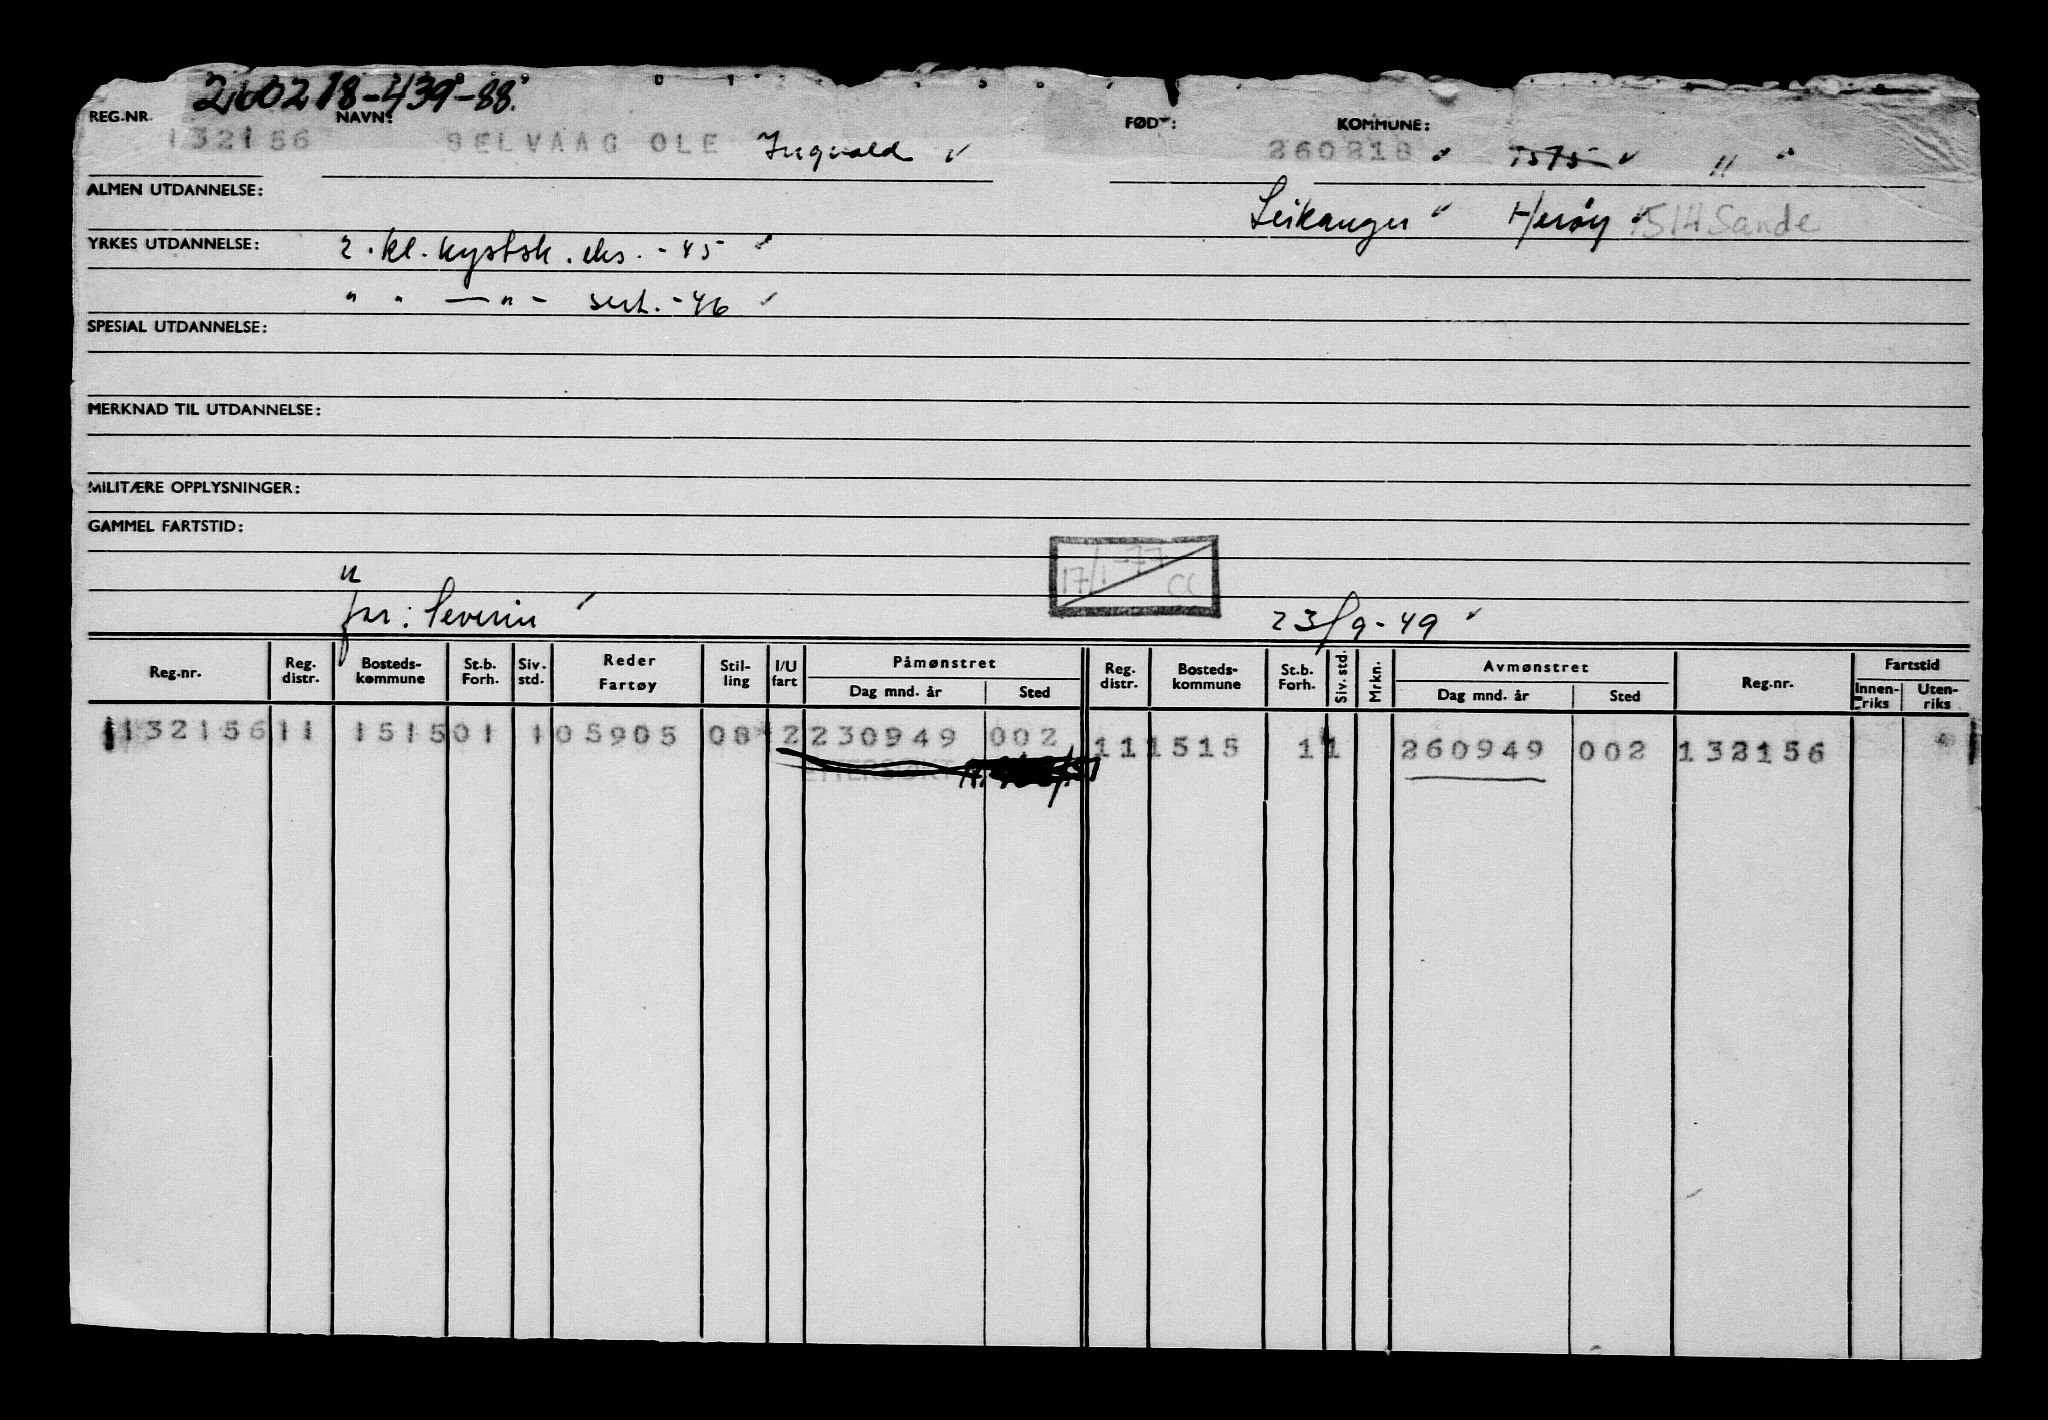 260218-439-88.
REG.NR. NAVN: FØDT: KOMMUNE:
132156 SELVAAG OLE Ingvald ✓ 260218 ✓ 1515 ✓ " "
ALMEN UTDANNELSE:
Leikanger ✓ Herøy ✓ 1514 Sande
YRKES UTDANNELSE: 2. kl. kystsk. eks. - 45 ✓
" " — " - sert. - 46 ✓
SPESIAL UTDANNELSE:
MERKNAD TIL UTDANNELSE:
MILITÆRE OPPLYSNINGER:
GAMMEL FARTSTID:
17/1-77 CC
far: Severin ✓ 23/9-49 ✓
Reg.nr. Reg. distr. Bosteds- kommune St.b. Forh. Siv. std. Reder Fartøy Stil- ling I/U fart Påmønstret Dag mnd. år Sted Reg. distr. Bosteds- kommune St.b. Forh. Siv. std. Mrkn. Avmønstret Dag mnd. år Sted Reg.nr. Fartstid Innen- riks Uten- riks
132156 11 1515 01 1 05905 08 2 230949 002 11 1515 1 1 260949 002 132156
ETTERSØKT